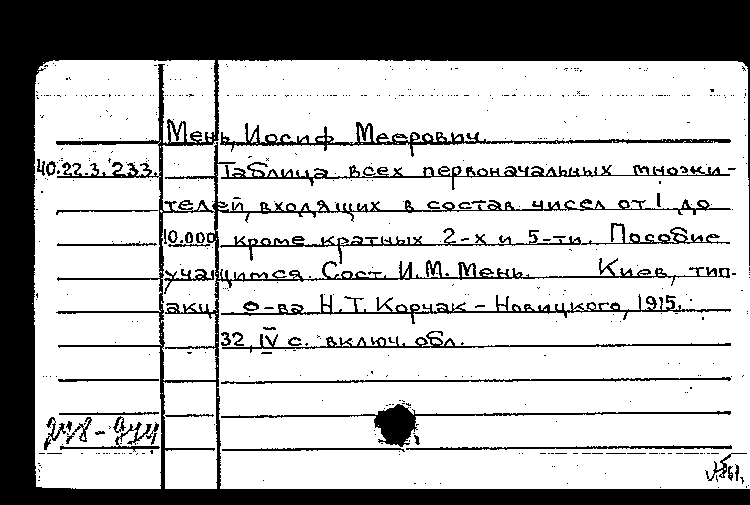 Мень, Иосиф Меерович.
40.22.3.233. Таблица всех первоначальных множи-
телей, входящих в состав чисел от 1 до
10.000 кроме кратных 2-х и 5-ти. Пособие
учащимся. Сост. И.М. Мень. Киев, тип.
акц. о-ва Н.Т. Корчак-Новицкого, 1915.
32, IV с. включ. обл.